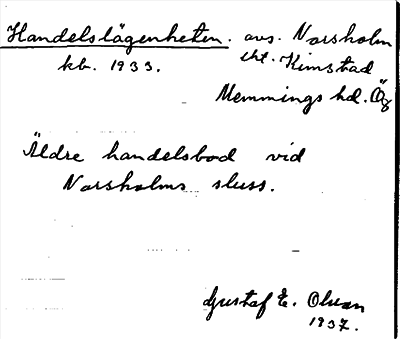 Handelslägenheten. avs. Norsholm
kb. 1933. enl. Kimstad
Memmings hd. Ög
Äldre handelsbod vid
Norsholms sluss.
Gustaf E. Olsson
1937.